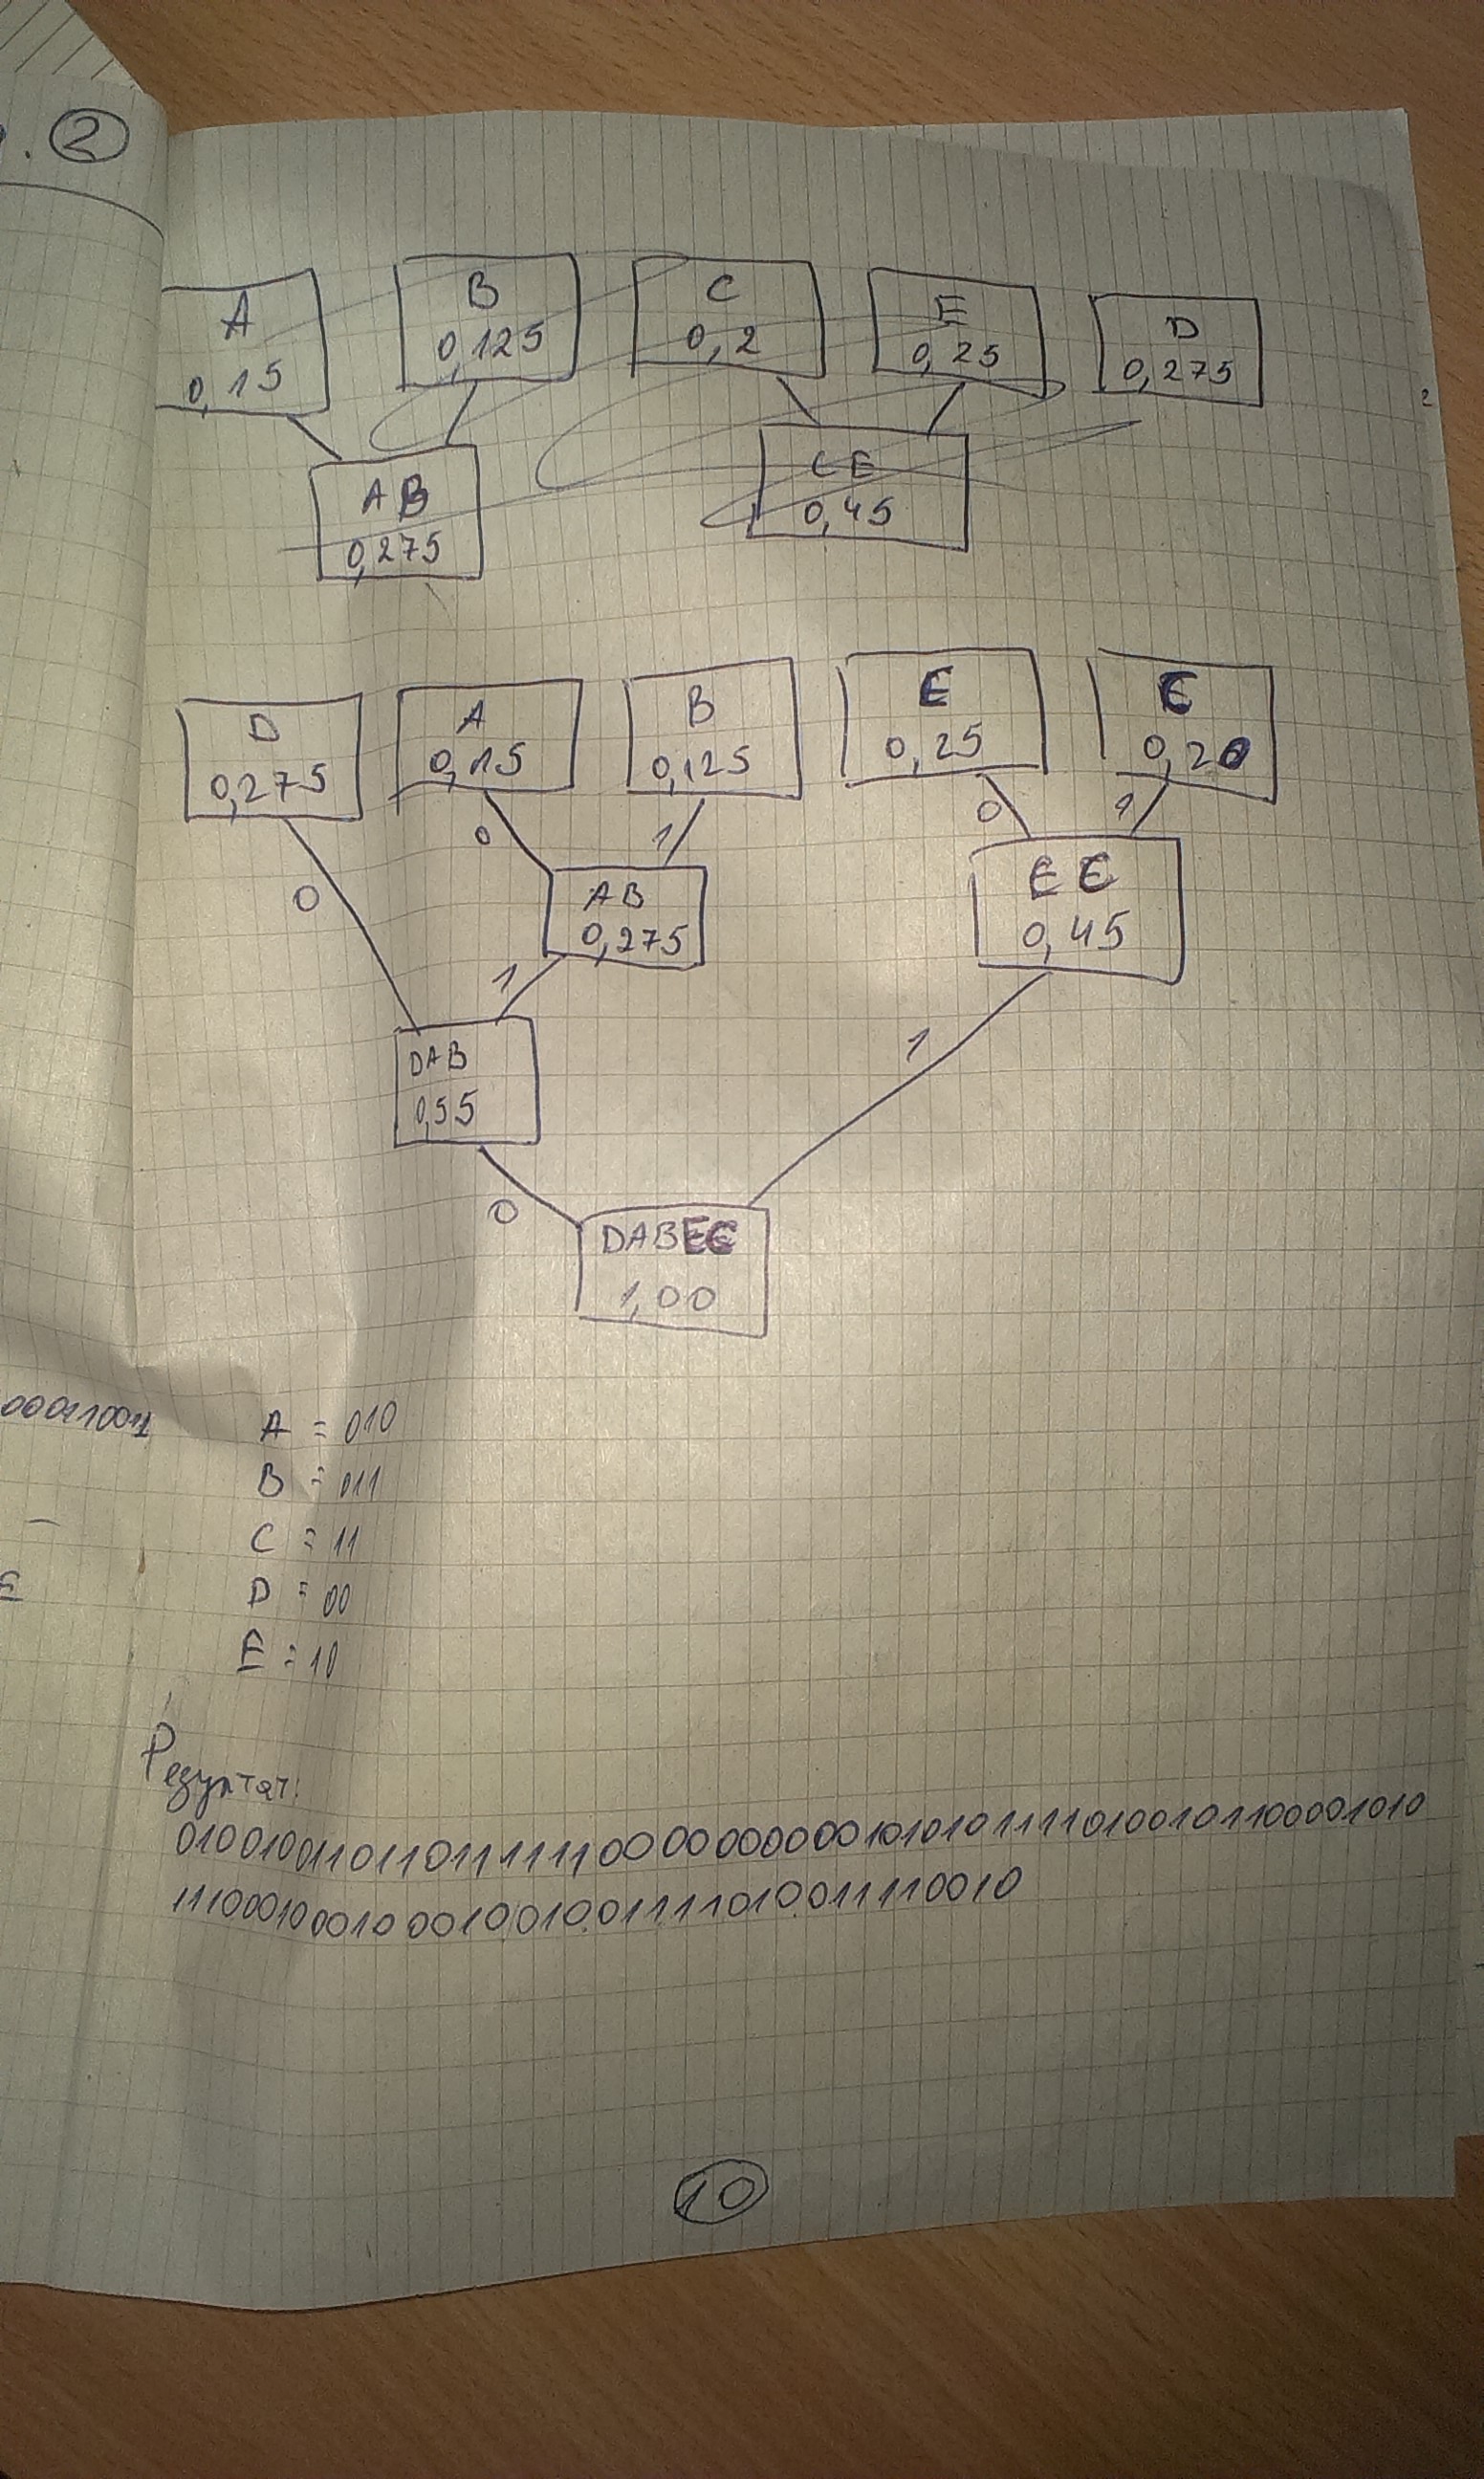 . 2
A B C E D
0,15 0,125 0,2 0,25 0,275
AB CE
0,275 0,45
D A B E C
0,275 0,15 0,125 0,25 0,20
0 1 0 1
0 AB EC
0,275 0,45
1
DAB 1
0,55
0
DABEC
1,00
A = 010
B = 011
C = 11
D = 00
E = 10
Резултат:
0100100110110111111100000000000101010111101001011000010 10
111000100010001001001111010011110010
10